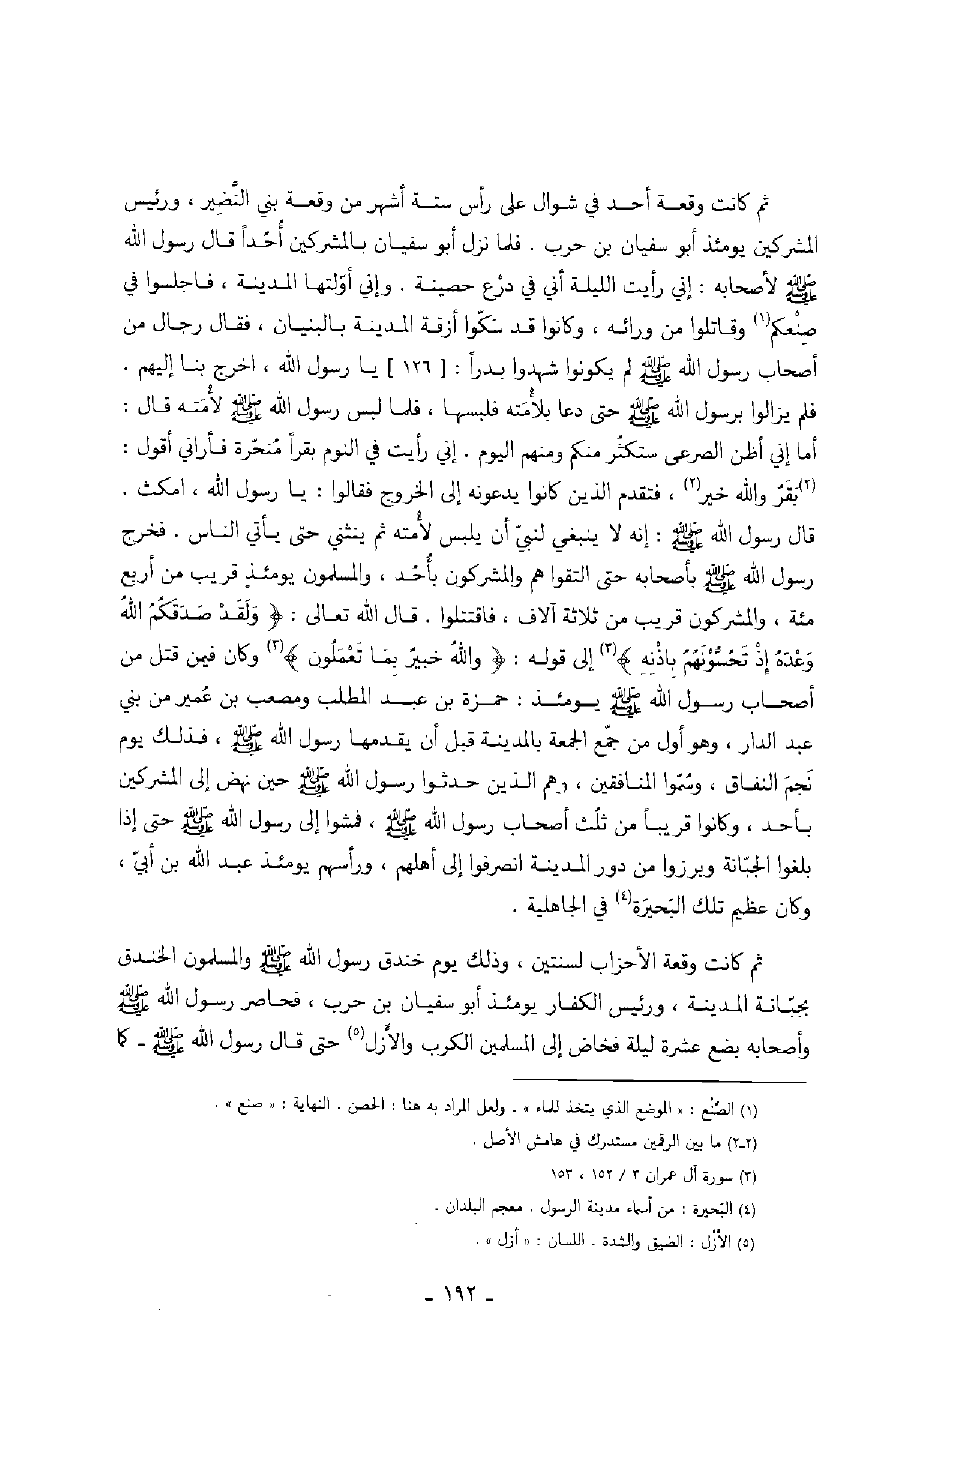 ثم كانت وقعة أحد في شوال على رأس ستة أشهر من وقعة بني النَّضِير ، ورئيس
المشركين يومئذ أبو سفيان بن حرب . فلما نزل أبو سفيان بالمشركين أُحُداً قال رسول الله
ﷺ لأصحابه : إني رأيت الليلة أني في درْع حصينة . وإني أوّلتها المدينة ، فاجلسوا في
صِنْعكم(١) وقاتلوا من ورائه ، وكانوا قد سَكّوا أزقة المدينة بالبنيان ، فقال رجال من
أصحاب رسول الله ﷺ لم يكونوا شهدوا بدراً : [ ١٢٦ ] يا رسول الله ، اخرج بنا إليهم .
فلم يزالوا برسول الله ﷺ حتى دعا بلأْمَته فلبسها ، فلما لبس رسول الله ﷺ لأْمَته قال :
أما إني أظن الصرعى ستكثُر منكم ومنهم اليوم . إني رأيت في النوم بقراً مُنَحّرة فأراني أقول :
(٢)بَقَرٌ والله خير(٢) ، فتقدم الذين كانوا يدعونه إلى الخروج فقالوا : يا رسول الله ، امكث .
قال رسول الله ﷺ : إنه لا ينبغي لنبيّ أن يلبس لأْمته ثم ينثني حتى يأتي الناس . فخرج
رسول الله ﷺ بأصحابه حتى التقوا هم والمشركون بأُحُد ، والمسلمون يومئذٍ قريب من أربع
مئة ، والمشركون قريب من ثلاثة آلاف ، فاقتتلوا . قال الله تعالى : ﴿ وَلَقَدْ صَدَقَكُمُ اللهُ
وَعْدَهُ إِذْ تَحُسُّوْنَهُمْ بِإِذْنِهِ ﴾(٣) إلى قوله : ﴿ واللهُ خبيرٌ بِمَا تَعْمَلُون ﴾(٣) وكان فيمن قتل من
أصحاب رسول الله ﷺ يومئذ : حمزة بن عبد المطلب ومصعب بن عُمير من بني
عبد الدار ، وهو أول من جمّع الجمعة بالمدينة قبل أن يقدمها رسول الله ﷺ ، فذلك يوم
نَجَمَ النفاق ، وسُمّوا المنافقين ، وهم الذين خذلوا رسول الله ﷺ حين نهض إلى المشركين
بأحد ، وكانوا قريباً من ثلُث أصحاب رسول الله ﷺ ، فمشوا إلى رسول الله ﷺ حتى إذا
بلغوا الجبّانة وبرزوا من دور المدينة انصرفوا إلى أهلهم ، ورأسهم يومئذ عبد الله بن أبيّ ،
وكان عظيم تلك البَحيرَة(٤) في الجاهلية .
ثم كانت وقعة الأحزاب لسنتين ، وذلك يوم خندق رسول الله ﷺ والمسلمون الخندق
بجبّانة المدينة ، ورئيس الكفار يومئذ أبو سفيان بن حرب ، فحاصر رسول الله ﷺ
وأصحابه بضع عشرة ليلة فخاض إلى المسلمين الكرب والأَزل(٥) حتى قال رسول الله ﷺ ـ كما
(١) الصِّنْع : « الموضع الذي يتخذ للماء » . ولعل المراد به هنا : الحصن . النهاية : « صنع » .
(٢-٢) ما بين الرقمين مستدرك في هامش الأصل .
(٣) سورة آل عمران ٣ / ١٥٢ ، ١٥٣
(٤) البَحيرة : من أسماء مدينة الرسول . معجم البلدان .
(٥) الأَزْل : الضيق والشدة . اللسان : « أزل » .
- ١٩٢ -